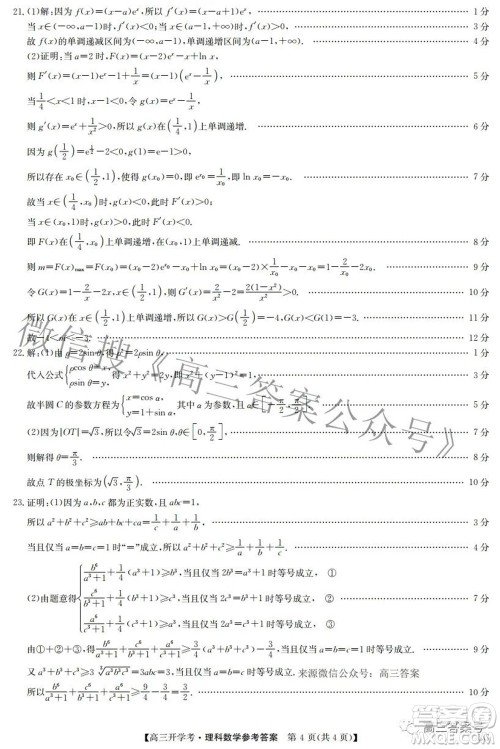 21.(1)解:因为f(x)=(x-a)eˣ,所以f′(x)=(x-a+1)eˣ, 1分
当x∈(-∞,a-1)时,f′(x)<0;当x∈(a-1,+∞)时,f′(x)>0. 3分
故f(x)的单调递减区间为(-∞,a-1),单调递增区间为(a-1,+∞). 4分
(2)证明:当a=2时,F(x)=(x-2)eˣ-x+ln x,
则F′(x)=(x-1)eˣ-1+1/x=(x-1)(eˣ-1/x). 5分
当1/4<x<1时,x-1<0,令g(x)=eˣ-1/x,
则g′(x)=eˣ+1/x²>0,所以g(x)在(1/4,1)上单调递增.
因为g(1/2)=e^(1/2)-2<0,g(1)=e-1>0,
所以存在x₀∈(1/2,1),使得g(x₀)=0,即e^(x₀)=1/x₀,即ln x₀=-x₀. 7分
故当x∈(1/4,x₀)时,g(x)<0,此时F′(x)>0;
当x∈(x₀,1)时,g(x)>0,此时F′(x)<0.
即F(x)在(1/4,x₀)上单调递增,在(x₀,1)上单调递减. 8分
则m=F(x)max=F(x₀)=(x₀-2)e^(x₀)-x₀+ln x₀=(x₀-2)×1/x₀-x₀-x₀=1-2/x₀-2x₀. 9分
令G(x)=1-2/x-2x,x∈(1/2,1),则G′(x)=2/x²-2=2(1-x²)/x²>0. 10分
所以G(x)在(1/2,1)上单调递增,所以G(x)>G(1/2)=-4,G(x)<G(1)=-3. 11分
故-4<m<-3. 12分
22.解:(1)由ρ=2sinθ,得ρ²=2ρsinθ, 1分
代入公式{ρcosθ=x, ρsinθ=y,得x²+y²=2y,即x²+(y-1)²=1, 3分
故半圆C的参数方程为{x=cosα, y=1+sinα,其中α为参数,且α∈[-π/2,π/2]. 5分
(2)因为|OT|=√3,所以令√3=2sinθ,θ∈[0,π/2], 7分
则解得θ=π/3. 8分
故点T的极坐标为(√3,π/3). 10分
23.证明:(1)因为a,b,c都为正实数,且abc=1,
所以a²+b²+c²≥ab+bc+ca=1/a+1/b+1/c, 3分
当且仅当a=b=c=1时“=”成立,所以a²+b²+c²≥1/a+1/b+1/c. 4分
(2)由题意得
b⁶/(a³+1)+1/4(a³+1)≥b³,当且仅当2b³=a³+1时等号成立, ①
c⁶/(b³+1)+1/4(b³+1)≥c³,当且仅当2c³=b³+1时等号成立, ②
a⁶/(c³+1)+1/4(c³+1)≥a³,当且仅当2a³=c³+1时等号成立, ③
7分
由①+②+③,得b⁶/(a³+1)+c⁶/(b³+1)+a⁶/(c³+1)≥3/4(a³+b³+c³)-3/4. 9分
又a³+b³+c³≥3∛(a³b³c³)=3abc=3,当且仅当a=b=c=1时等号成立,
所以b⁶/(a³+1)+c⁶/(b³+1)+a⁶/(c³+1)≥9/4-3/4=3/2. 10分
来源微信公众号:高三答案
微信搜《高三答案公众号》
【高三开学考·理科数学参考答案 第4页(共4页)】
高三答案号